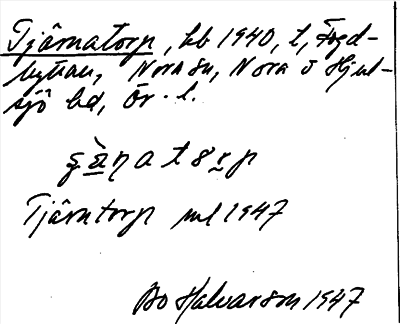 Tjärnatorp, hb 1940, t, Fogd-
hyttan, Nora sn, Nora o Hjul-
sjö bd, Ör. l.
Tjärntorp ml 1947
Bo Halvarson 1947